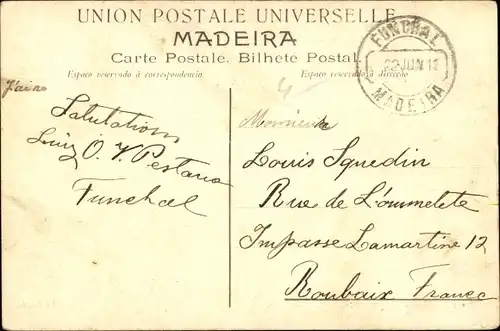 UNION POSTALE UNIVERSELLE
MADEIRA
Carte Postale. Bilhete Postal.
Espaço reservado á correspondencia
Espaço reservado á direcção
FUNCHAL
22 JUN 12
MADEIRA
Salutations
Luiz O. V. Pestana
Funchal
Monsieur
Louis Squedin
Rue de L'oummelete
Impasse Lamartine 12
Roubaix France